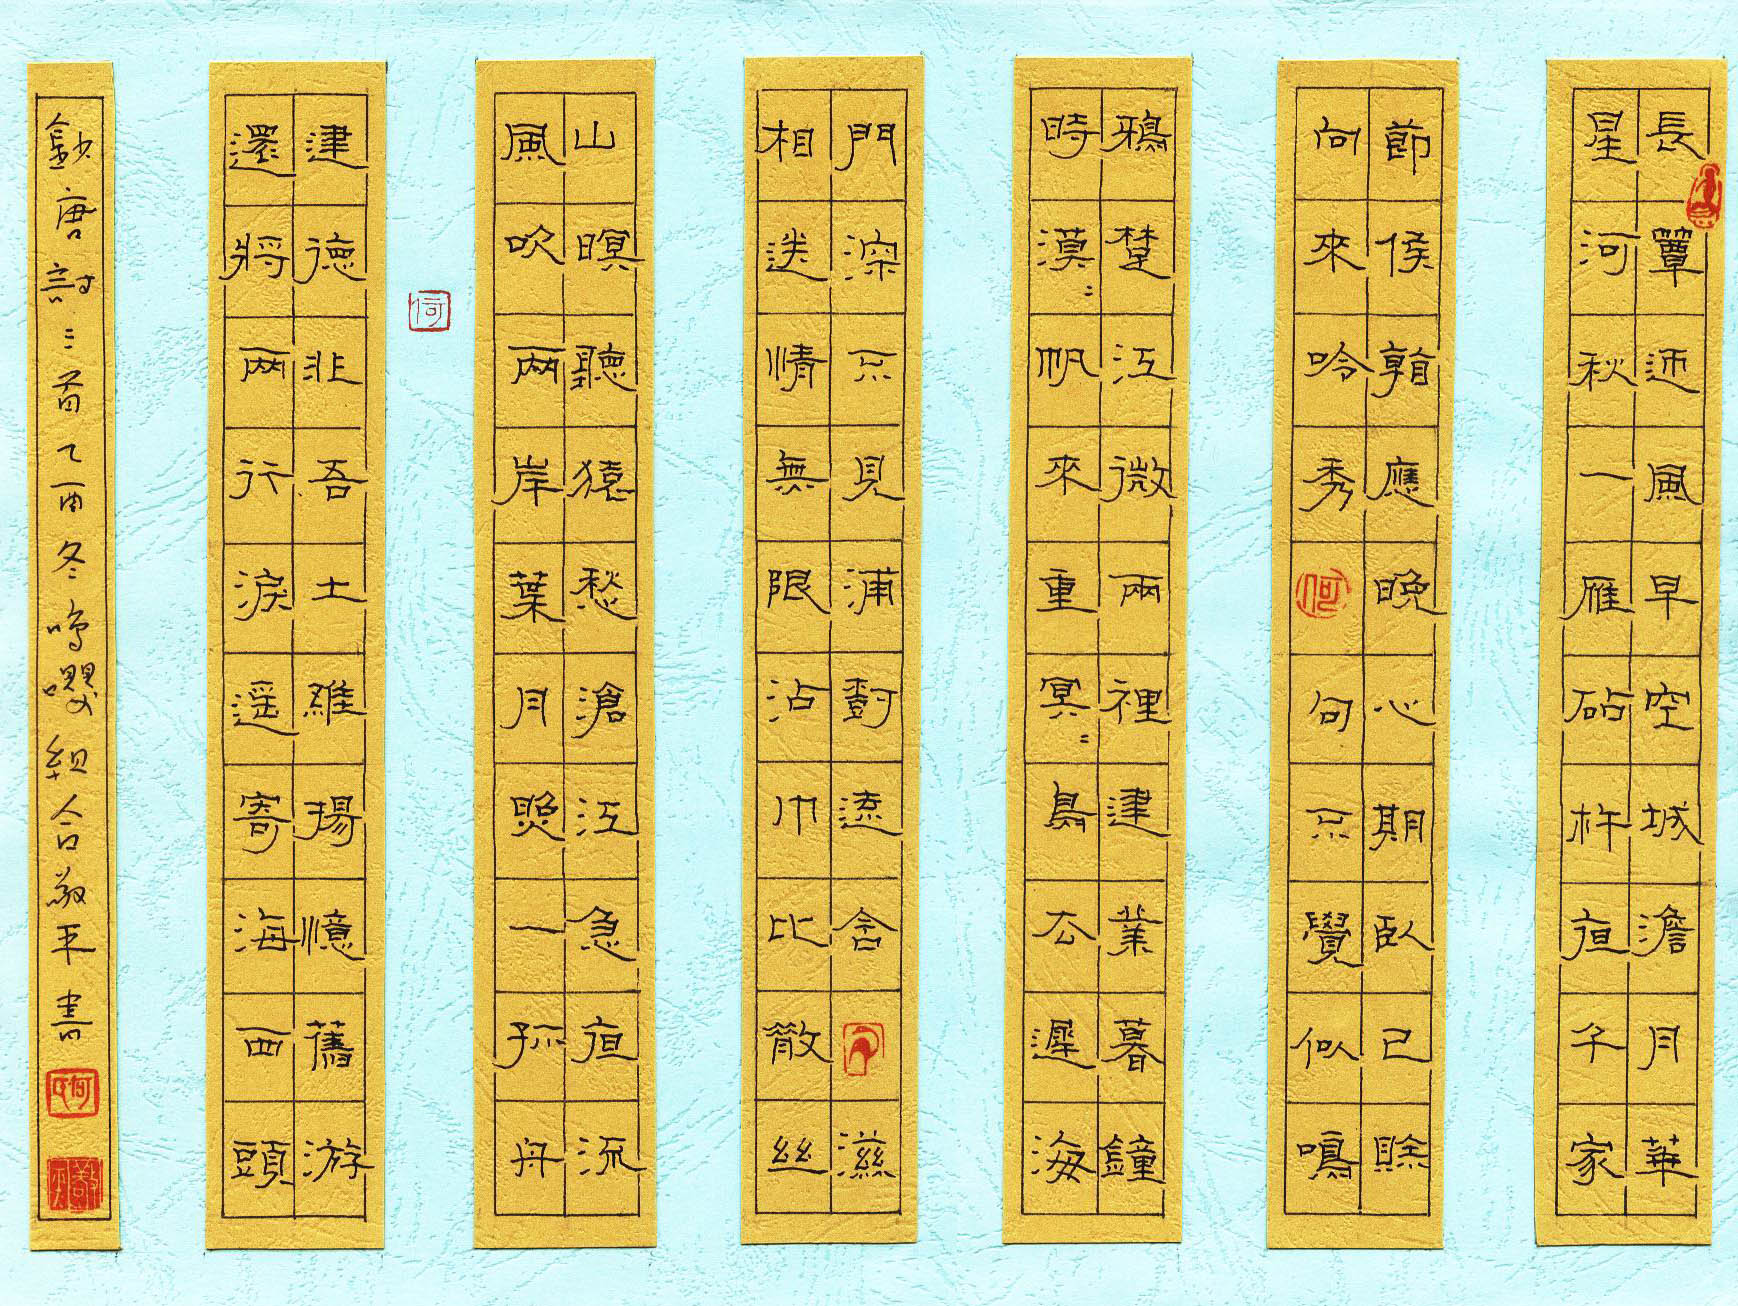 長簟迎風早空城澹月華
星河秋一雁砧杵夜千家
節候看應晚心期臥已賖
向來吟秀句不覺似鳴
鴉楚江微雨裡建業暮鐘
時漠〻帆來重冥〻鳥去遲海
門深不見浦樹遠含滋
相送情無限沾巾比散絲
山暝聽猿愁滄江急夜流
風吹兩岸葉月照一孤舟
建德非吾土維揚憶舊游
還將兩行淚遥寄海西頭
鈔唐詩三首乙酉冬鳴嚶組合敬平書
何
何
何氏